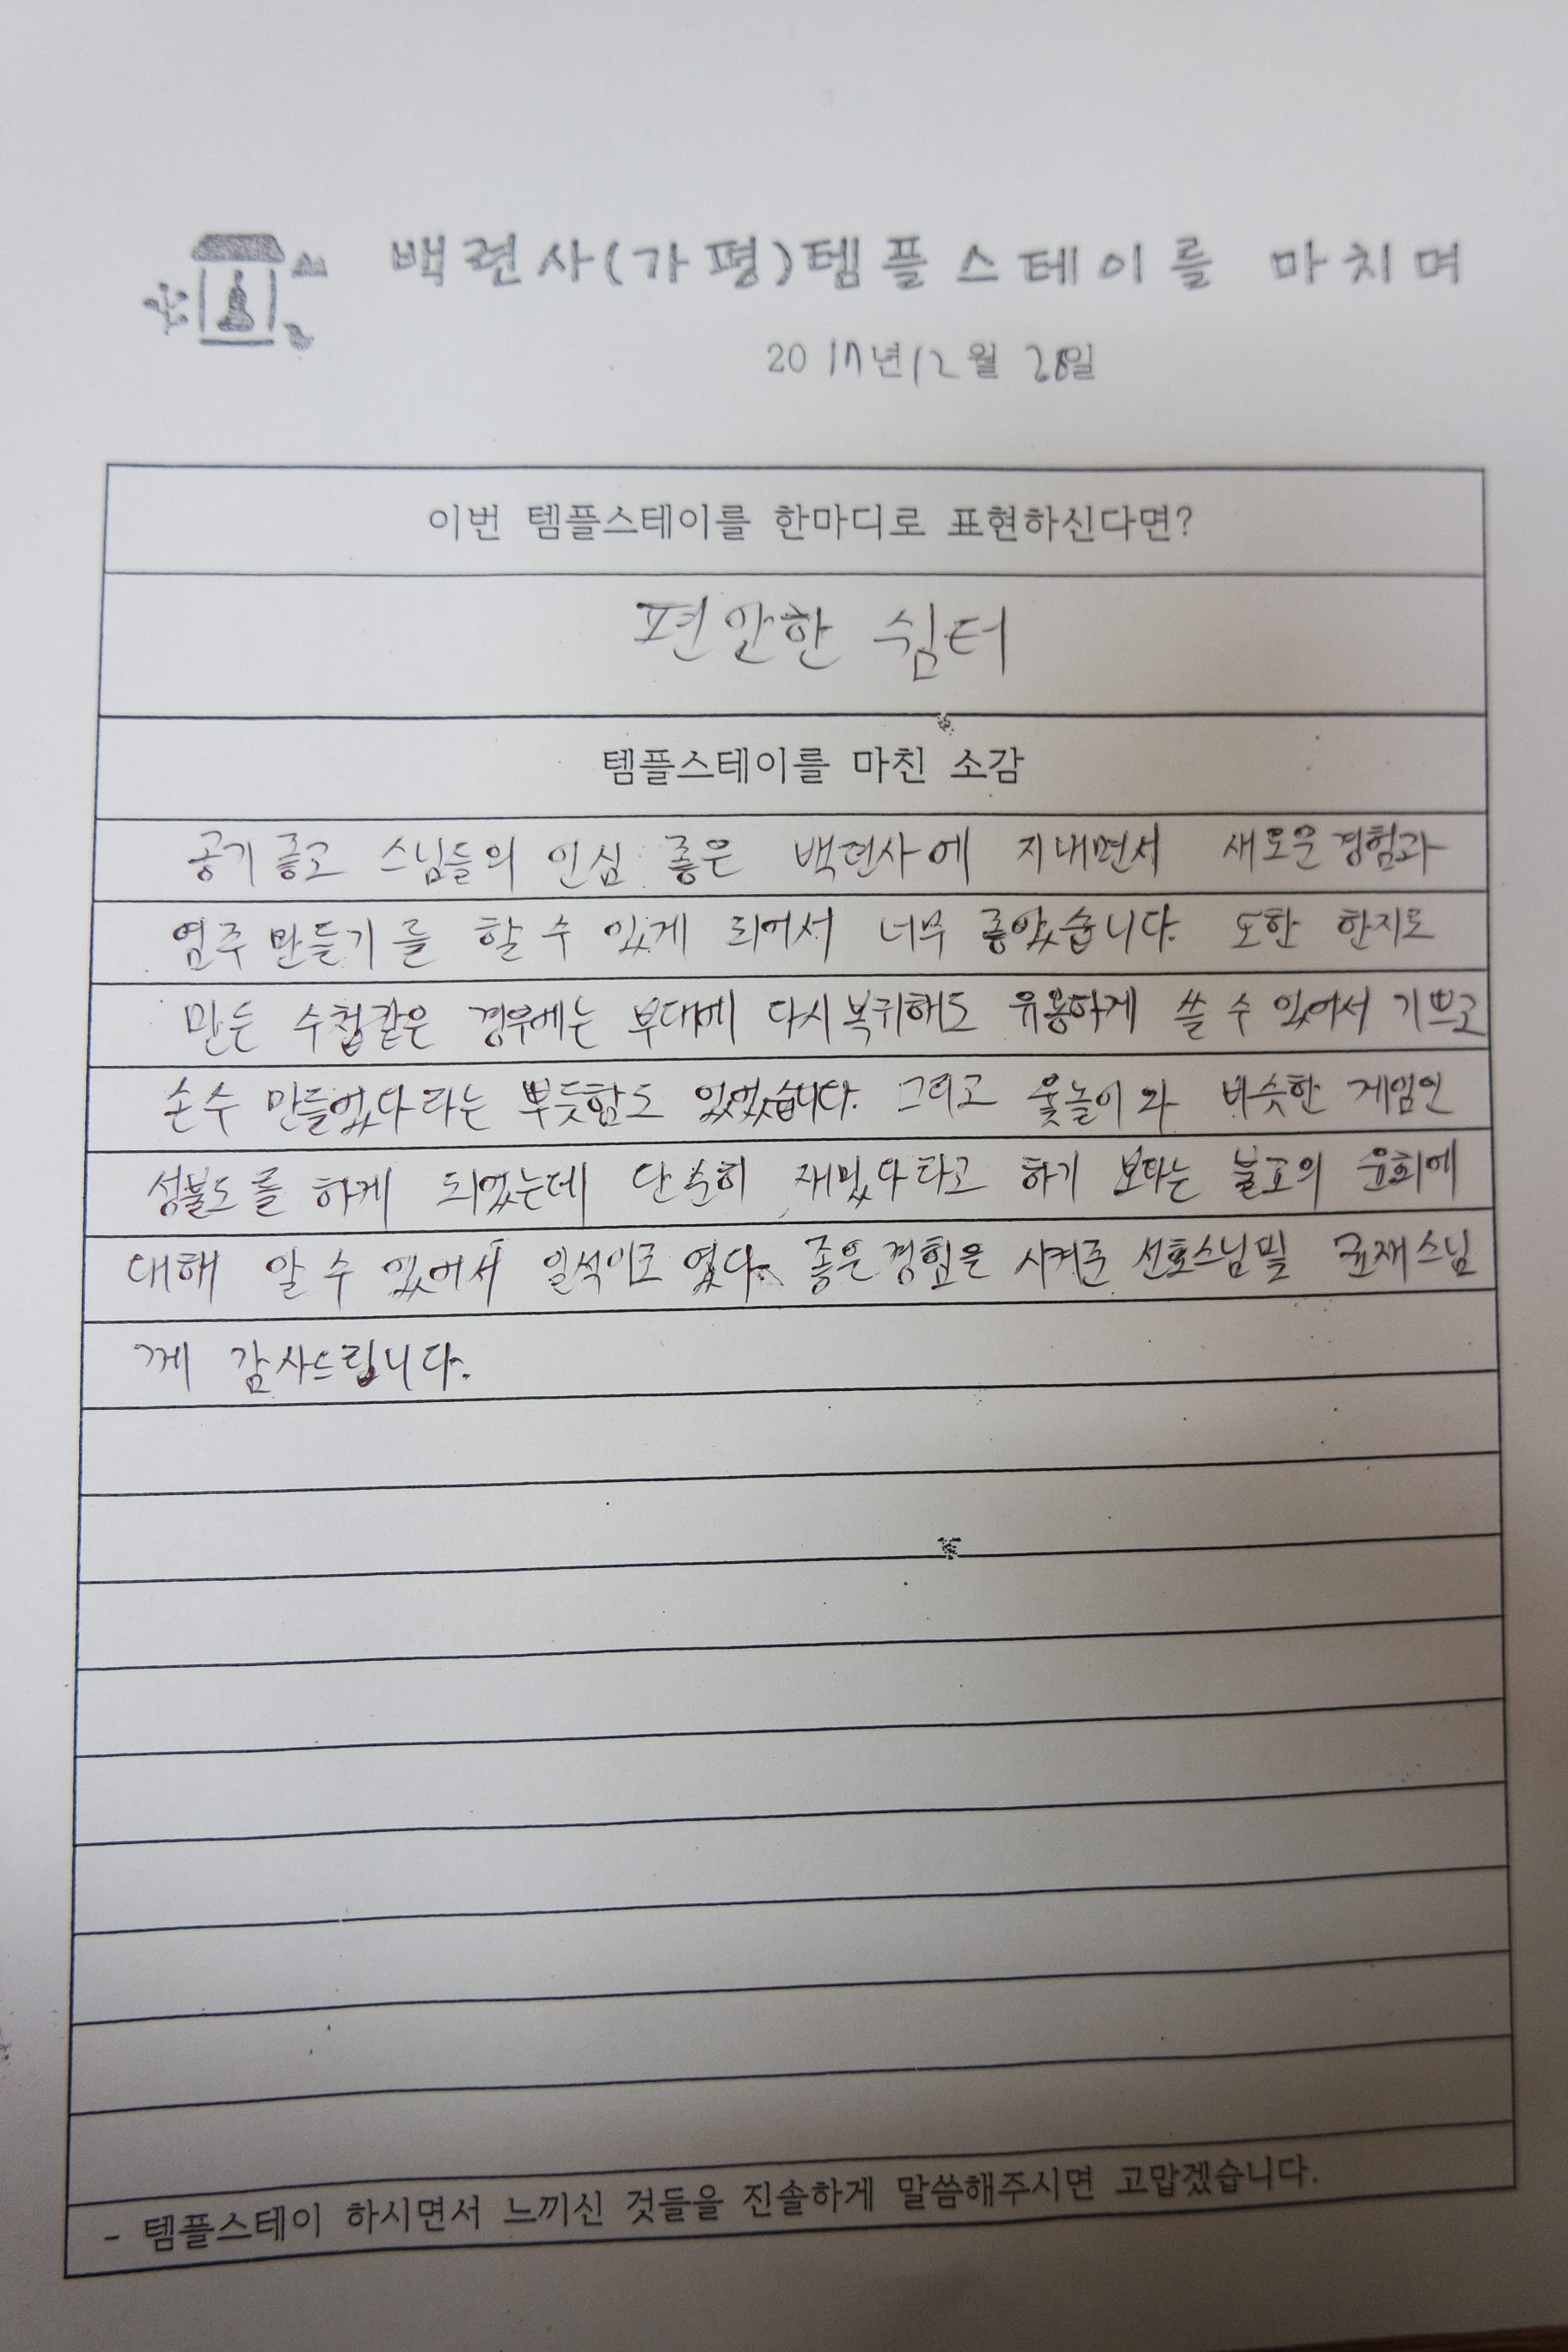 백련사(가평)템플스테이를 마치며
2017년 12월 28일
이번 템플스테이를 한마디로 표현하신다면?
편안한 쉼터
템플스테이를 마친 소감
공기 좋고 스님들의 인심 좋은 백련사에 지내면서 새로운 경험과
염주 만들기를 할 수 있게 되어서 너무 좋았습니다. 또한 한지로
만든 수첩같은 경우에는 부대에 다시 복귀해도 유용하게 쓸 수 있어서 기쁘고
손수 만들었다라는 뿌듯함도 있었습니다. 그리고 윷놀이와 비슷한 게임인
성불도를 하게 되었는데 단순히 재밌다라고 하기 보다는 불교의 윤회에
대해 알 수 있어서 일석이조 였다. 좋은 경험을 시켜준 선호스님및 스님
께 감사드립니다.
- 템플스테이 하시면서 느끼신 것들을 진솔하게 말씀해주시면 고맙겠습니다.